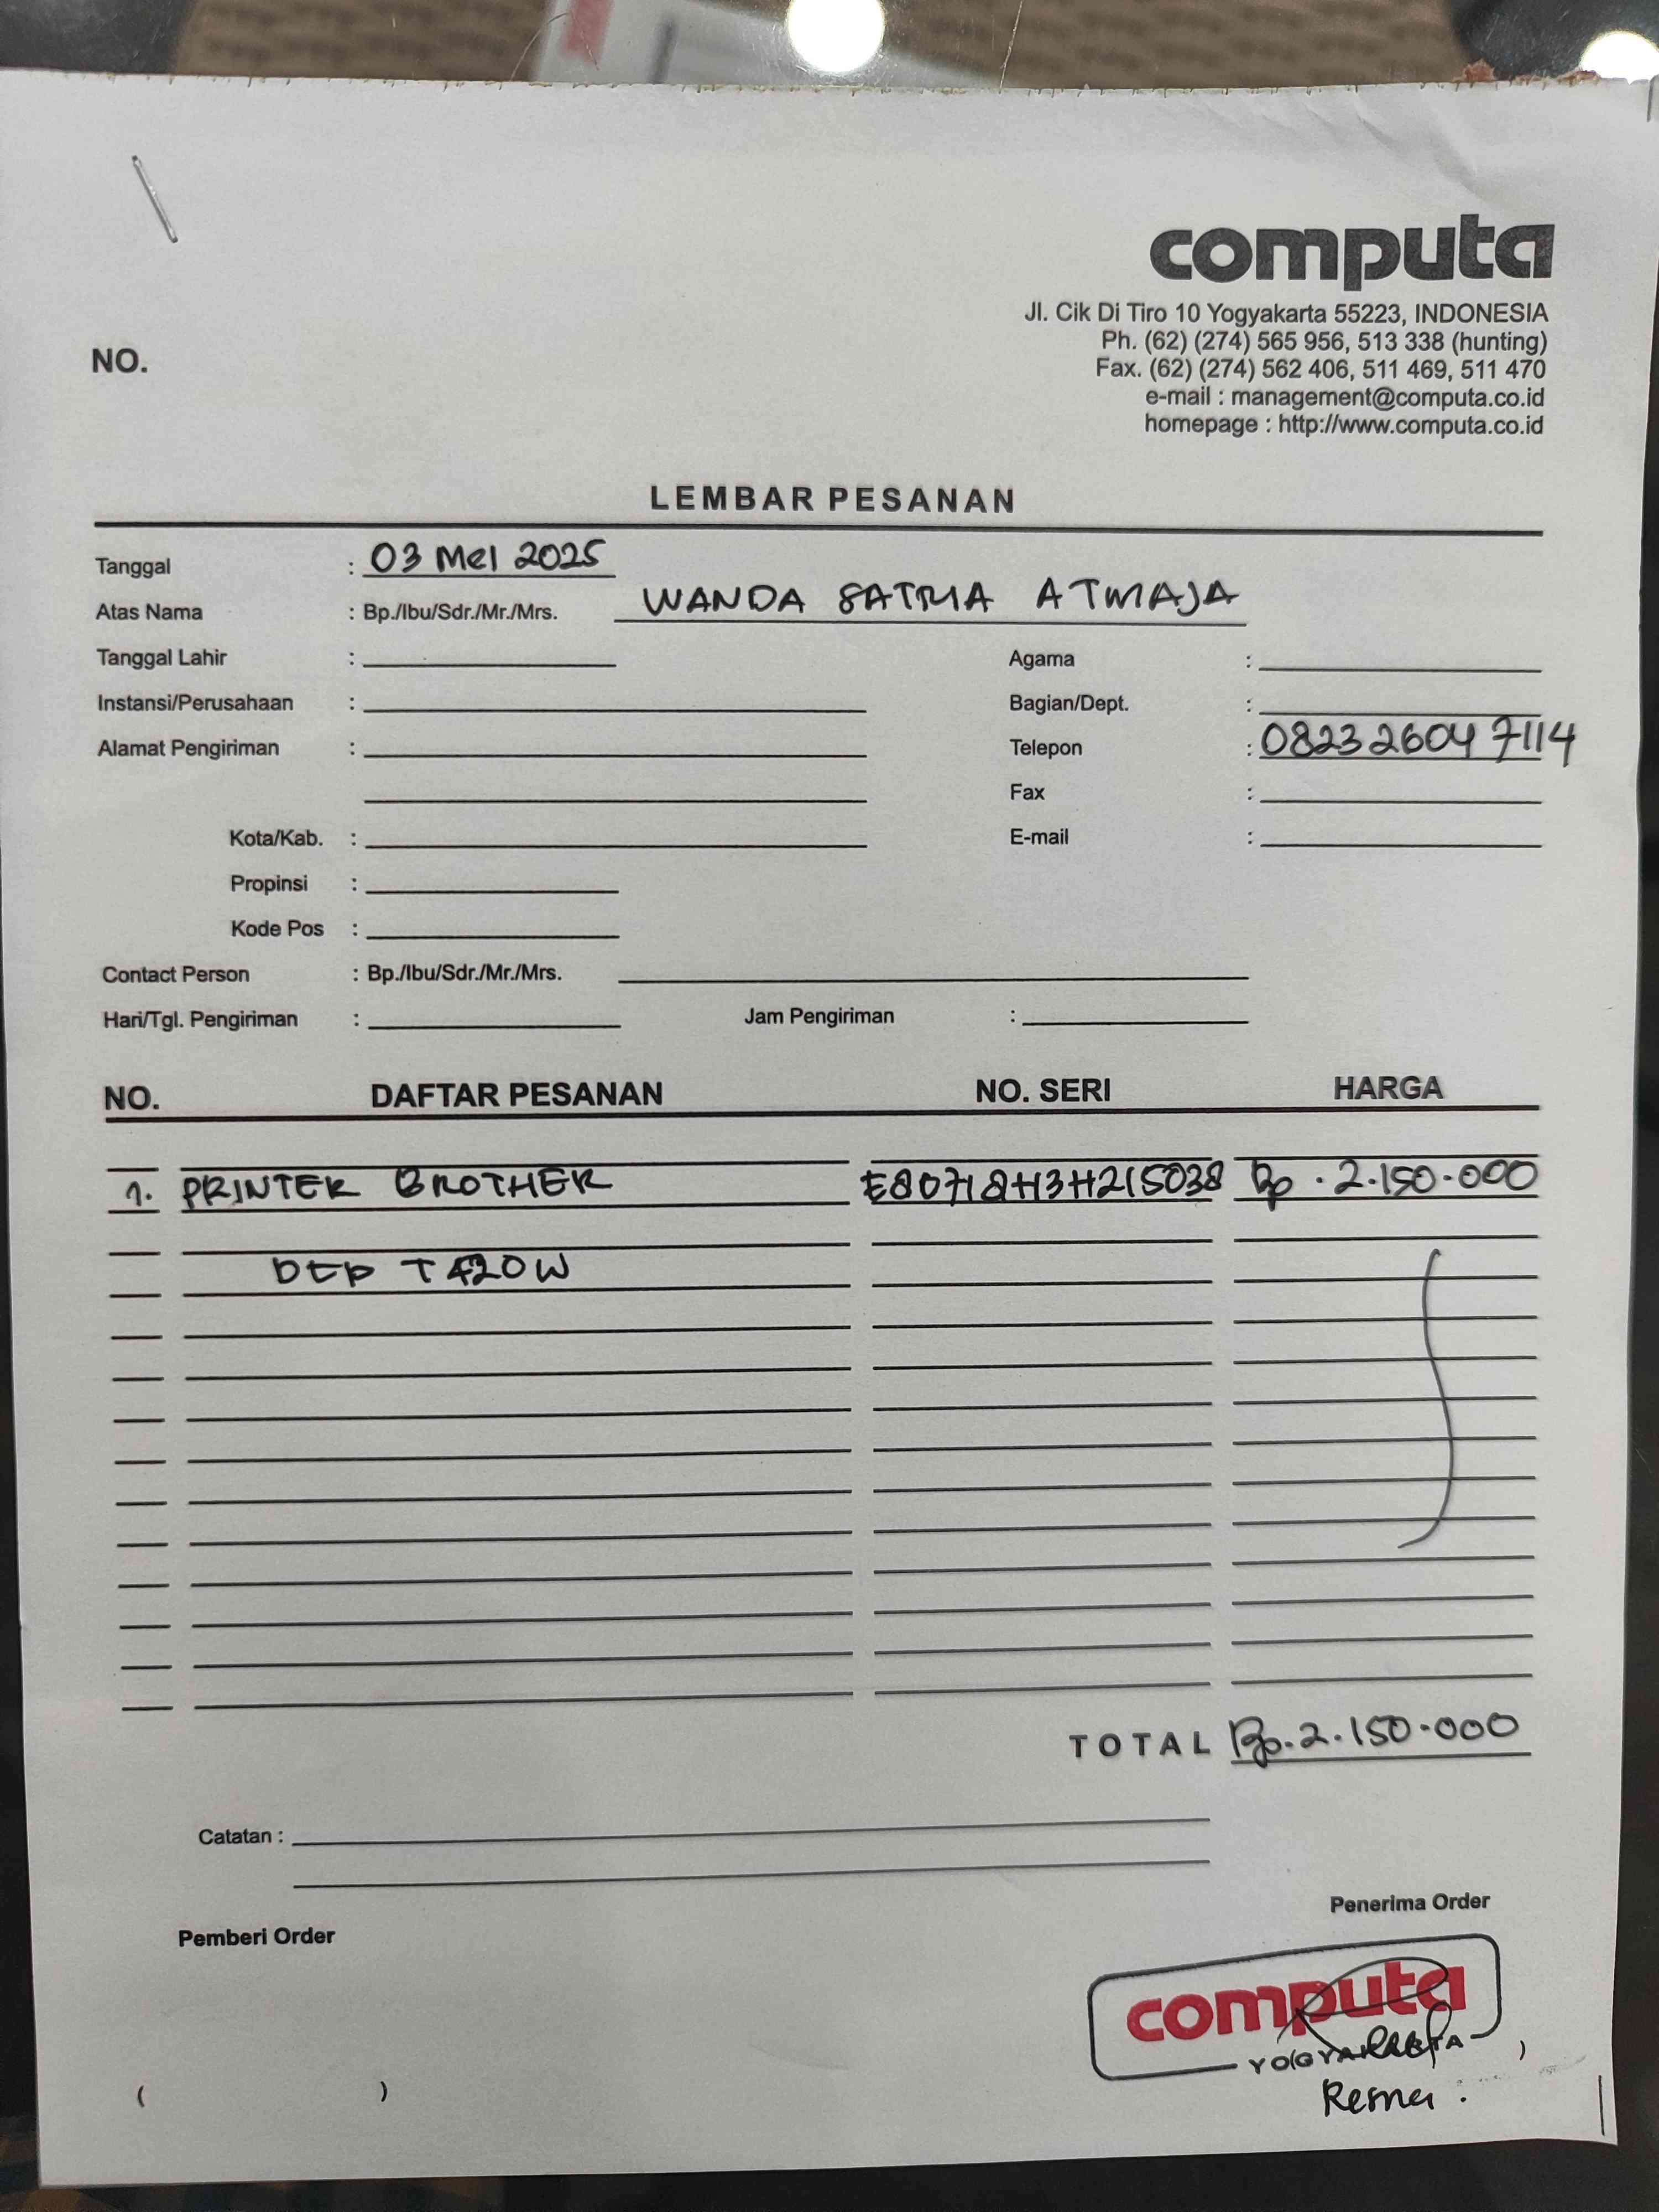 computa
Jl. Cik Di Tiro 10 Yogyakarta 55223, INDONESIA
Ph. (62) (274) 565 956, 513 338 (hunting)
Fax. (62) (274) 562 406, 511 469, 511 470
e-mail : management@computa.co.id
homepage : http://www.computa.co.id
NO.
LEMBAR PESANAN
Tanggal : 03 Mei 2025
Atas Nama : Bp./Ibu/Sdr./Mr./Mrs. WANDA SATRIA ATMAJA
Tanggal Lahir : Agama :
Instansi/Perusahaan : Bagian/Dept. :
Alamat Pengiriman : Telepon : 0823 2604 7114
Fax :
Kota/Kab. : E-mail :
Propinsi :
Kode Pos :
Contact Person : Bp./Ibu/Sdr./Mr./Mrs.
Hari/Tgl. Pengiriman : Jam Pengiriman :
NO. DAFTAR PESANAN NO. SERI HARGA
1. PRINTER BROTHER Rp. 2.150.000
DCP T420W
TOTAL Rp. 2.150.000
Catatan :
Penerima Order
Pemberi Order
computa
YOGYAKARTA
( ) )